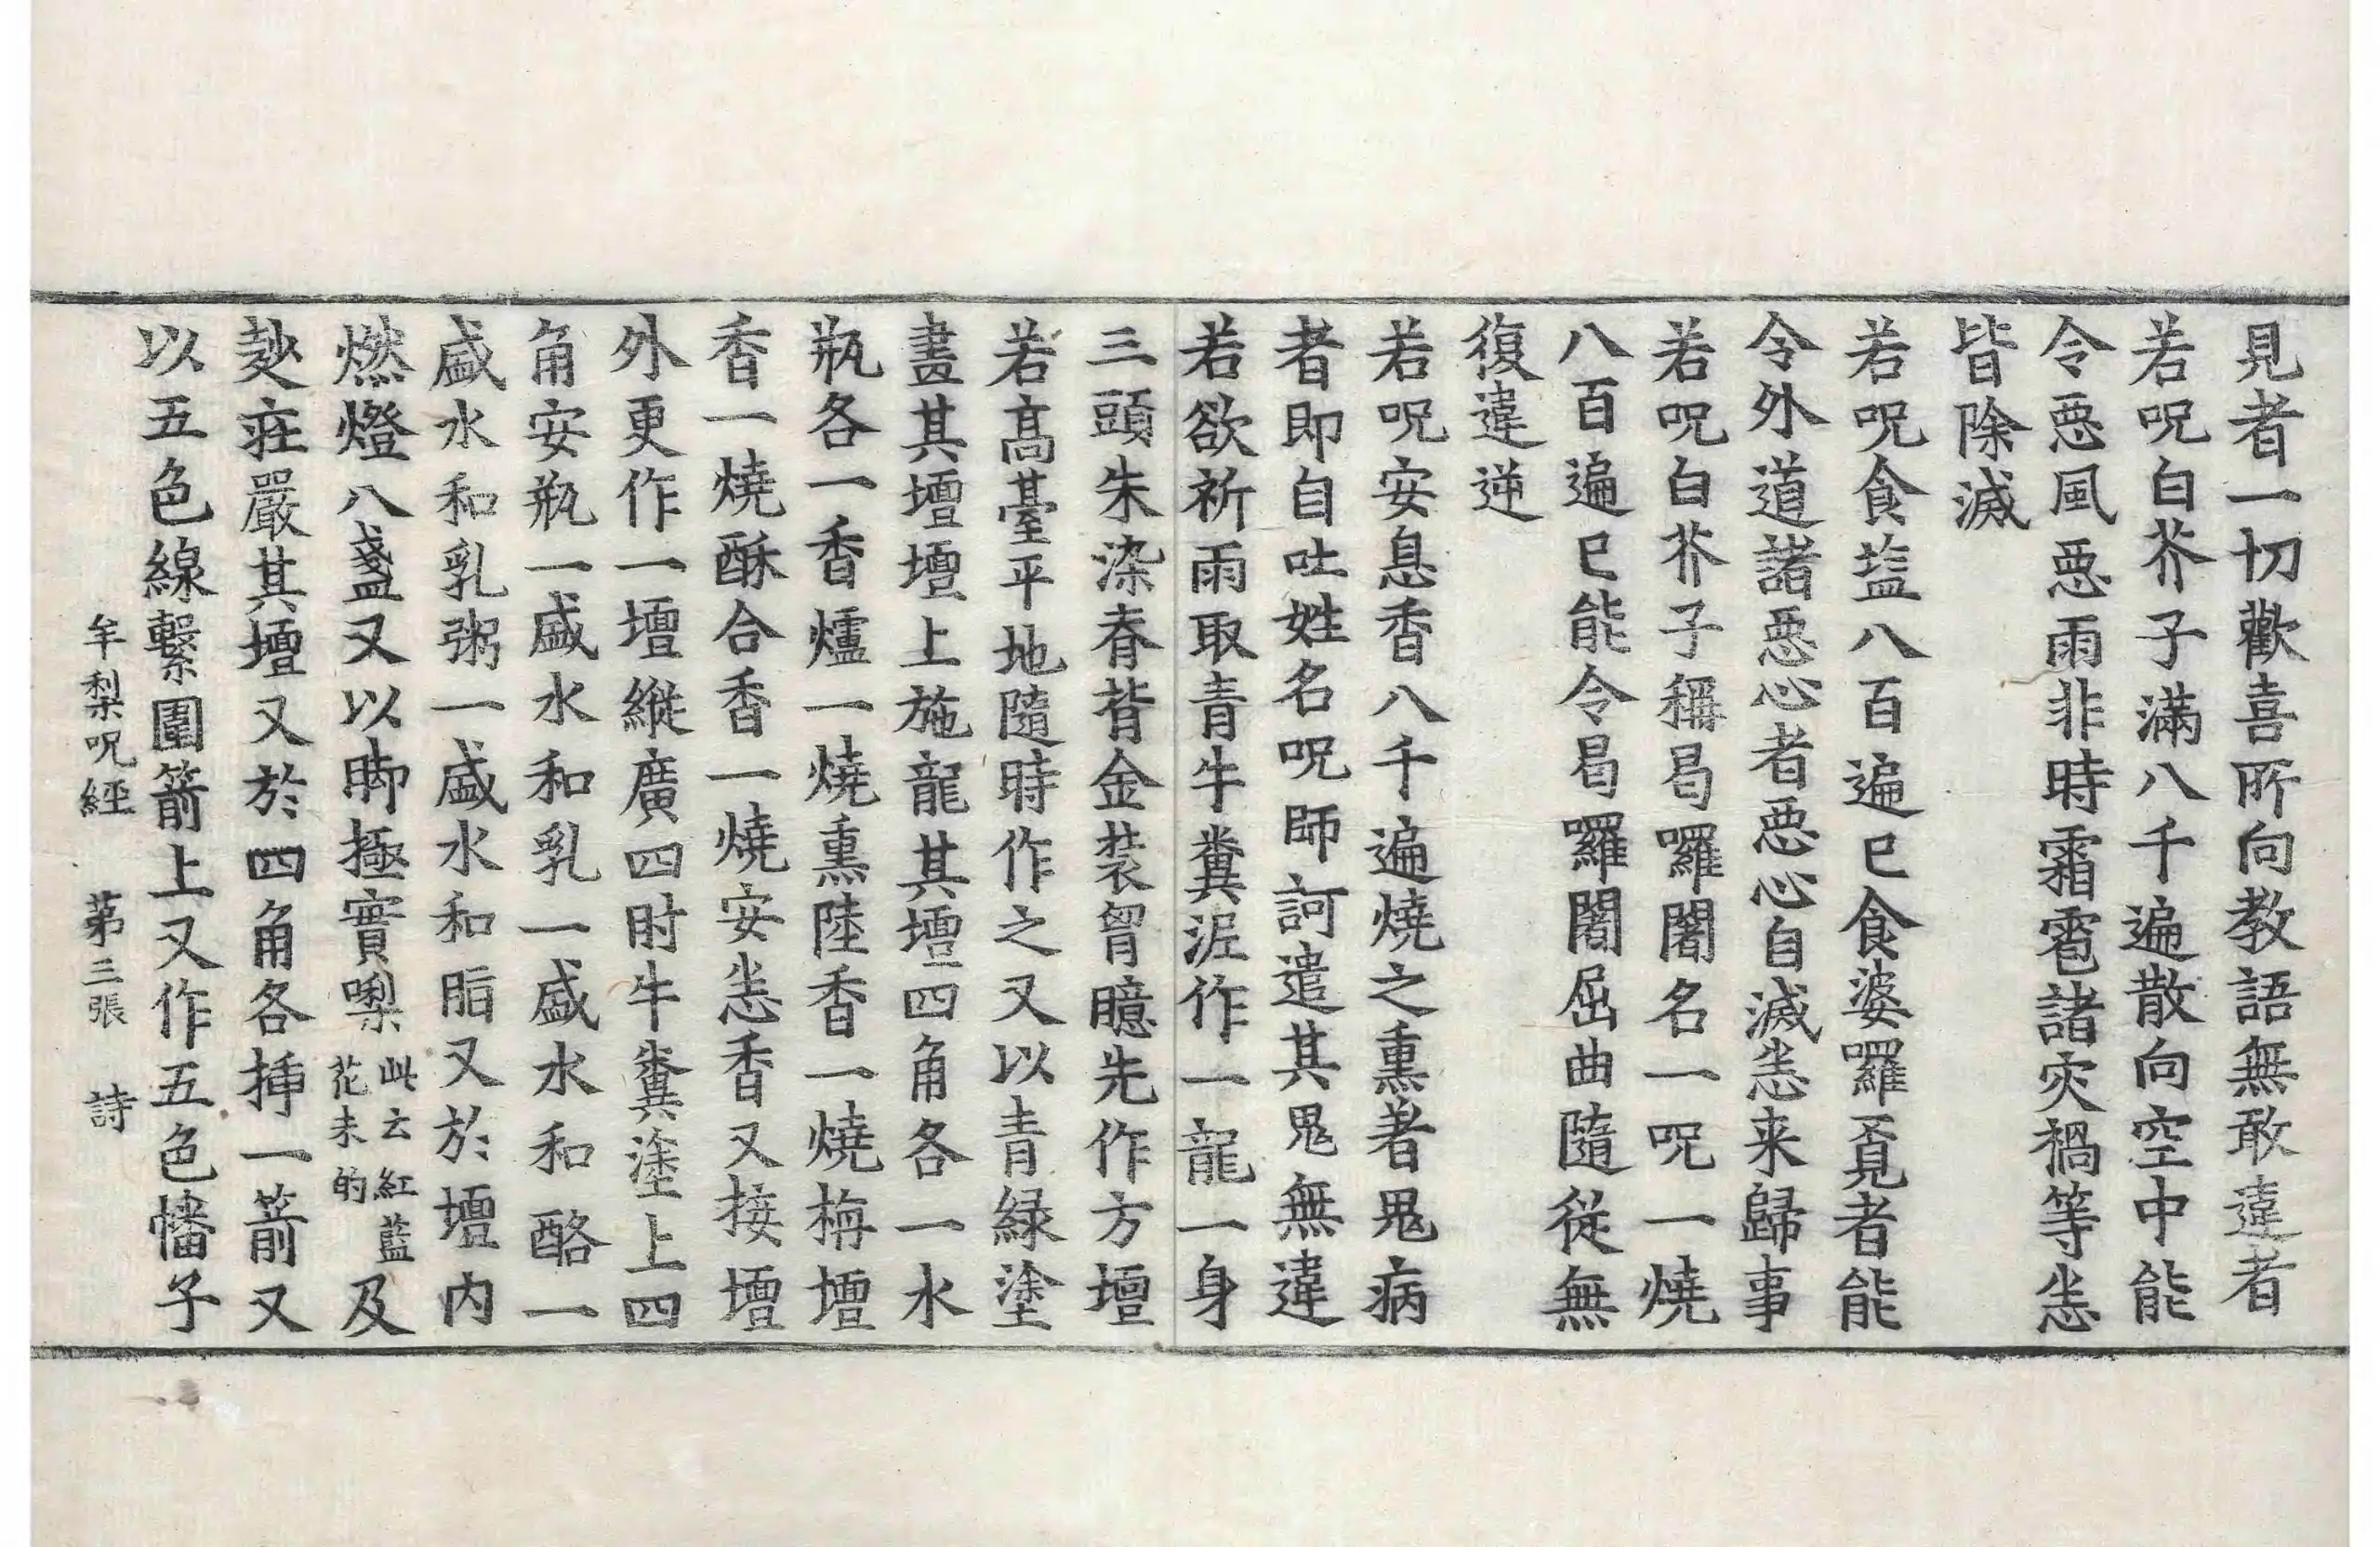 見者一切歡喜所向教語無敢違者
若呪白芥子滿八千遍散向空中能
令惡風惡雨非時霜雹諸灾禍等恙
皆除滅
若呪食盐八百遍已食婆囉覔者能
令外道諸惡心者惡心自滅恙来歸事
若呪白芥子稱曷囉闍名一呪一燒
八百遍已能令曷囉闍屈曲隨從無
復違逆
若呪安息香八千遍燒之熏著鬼病
者即自吐姓名呪師訶遣其鬼無違
若欲祈雨取青牛糞泥作一龍一身
三頭朱染脊背金裝胷臆先作方壇
若髙臺平地隨時作之又以青緑塗
畫其壇壇上施龍其壇四角各一水
瓶各一香爐一燒熏陸香一燒栴壇
香一燒酥合香一燒安恙香又接壇
外更作一壇縱廣四肘牛糞塗上四
角安瓶一盛水和乳一盛水和酪一
盛水和乳粥一盛水和脂又於壇内
燃燈八盞又以脚極實㗚此云紅藍花未的及
麨莊嚴其壇又於四角各揷一箭又
以五色線繫圍箭上又作五色幡子
牟梨呪經 第三張 詩